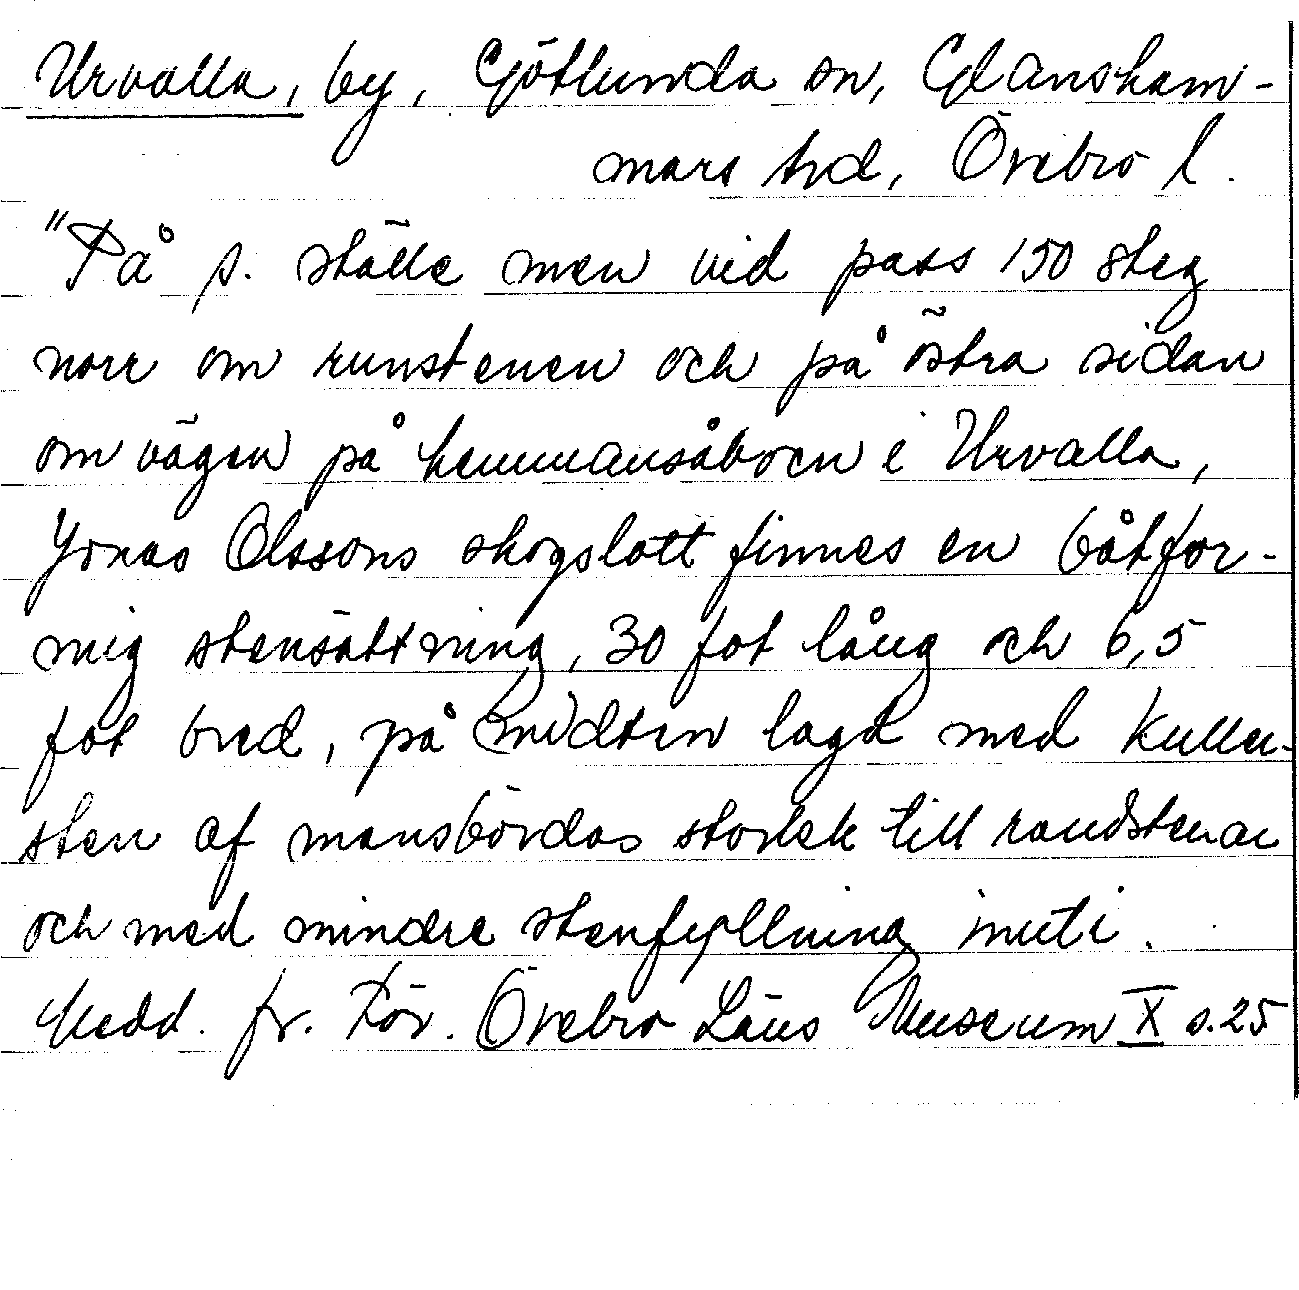 Urvalla, by, Götlunda sn, Glansham-
mars hrd, Örebro l.
"På s. ställe men vid pass 150 steg
norr om runstenen och på östra sidan
om vägen på hemmansåboen i Urvalla,
Jonas Olssons skogslott finnes en båtfor-
mig stensättning, 30 fot lång och 6,5
fot bred, på midten lagd med kuller-
sten af mansbördas storlek till randstenar
och med mindre stenfyllning inuti.
Medd. fr. För. Örebro Läns Museum X s.25